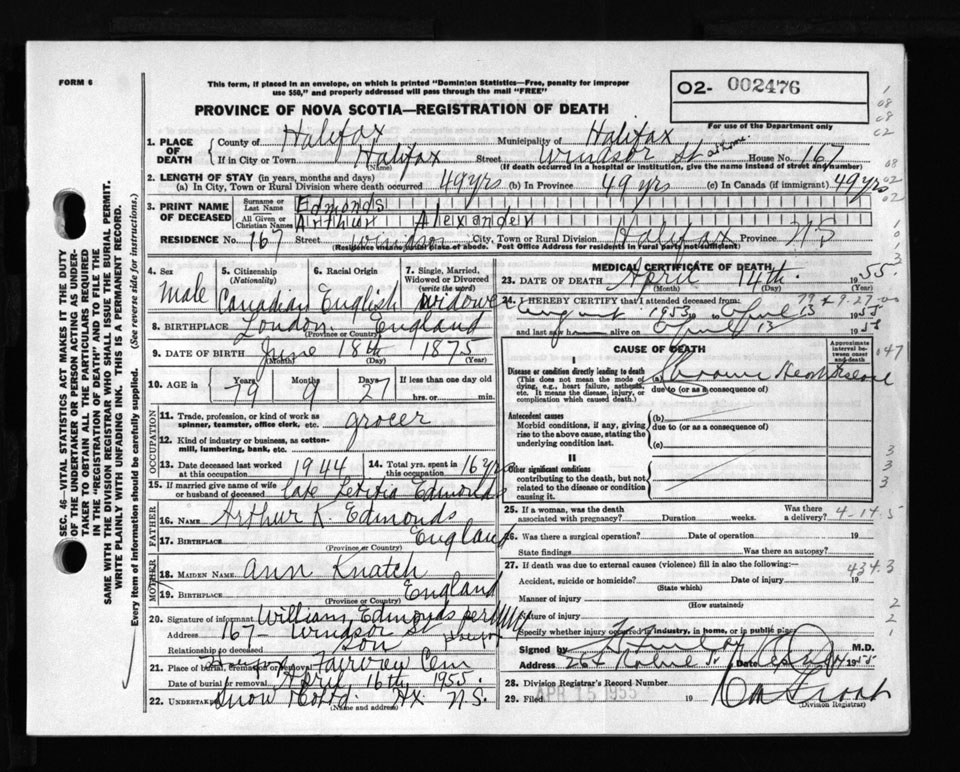 FORM 6
This form, if placed in an envelope, on which is printed "Dominion Statistics—Free, penalty for improper
use $50," and properly addressed will pass through the mail "FREE"
O2- 002476
For use of the Department only
PROVINCE OF NOVA SCOTIA—REGISTRATION OF DEATH
1. PLACE OF DEATH
County of Halifax Municipality of Halifax
If in City or Town Halifax Street Windsor St at home House No. 167
(Name) (If death occurred in a hospital or institution, give the name instead of street and number)
2. LENGTH OF STAY (in years, months and days)
(a) In City, Town or Rural Division where death occurred 49 yrs (b) In Province 49 yrs (c) In Canada (if immigrant) 49 yrs
3. PRINT NAME OF DECEASED
Surname or Last Name Edmonds
All Given or Christian Names Arthur Alexander
RESIDENCE No. 167 Street Windsor City, Town or Rural Division Halifax Province NS
(Residence means usual place of abode. Post Office Address for residents in rural parts not sufficient)
4. Sex Male
5. Citizenship (Nationality) Canadian
6. Racial Origin English
7. Single, Married, Widowed or Divorced (write the word) widower
8. BIRTHPLACE London England
(Province or Country)
9. DATE OF BIRTH June 18th 1875
(Month) (Day) (Year)
10. AGE in Years Months Days If less than one day old
79 9 27 hrs. or min.
OCCUPATION
11. Trade, profession, or kind of work as
spinner, teamster, office clerk, etc. grocer
12. Kind of industry or business, as cotton-
mill, lumbering, bank, etc.
13. Date deceased last worked
at this occupation 1944
14. Total yrs. spent in
this occupation 16 yrs
15. If married give name of wife
or husband of deceased late Letitia Edmonds
FATHER
16. NAME Arthur K. Edmonds
17. BIRTHPLACE England
(Province or Country)
MOTHER
18. MAIDEN NAME Ann Knatch
19. BIRTHPLACE England
(Province or Country)
20. Signature of informant William Edmonds per
Address 167 - Windsor St
Relationship to deceased Son
21. Place of burial, cremation or removal Fairview Cem
Date of burial or removal April 16th 1955.
22. Undertaker Snow Co Ltd Hx N.S.
(Name and address)
MEDICAL CERTIFICATE OF DEATH
23. DATE OF DEATH April 14th 1955.
(Month) (Day) (Year)
24. I HEREBY CERTIFY that I attended deceased from:
August 1953 to April 13 1955
and last saw h alive on April 13 1955
CAUSE OF DEATH
Approximate interval between onset and death
I
Disease or condition directly leading to death
(This does not mean the mode of
dying, e.g., heart failure, asthenia,
etc. It means the disease, injury, or
complication which caused death.)
(a)
due to (or as a consequence of)
Antecedent causes
Morbid conditions, if any, giving
rise to the above cause, stating the
underlying condition last.
(b)
due to (or as a consequence of)
(c)
II
Other significant conditions
contributing to the death, but not
related to the disease or condition
causing it.
25. If a woman, was the death
associated with pregnancy? Duration weeks. Was there
a delivery?
26. Was there a surgical operation? Date of operation 19
State findings Was there an autopsy?
27. If death was due to external causes (violence) fill in also the following:
Accident, suicide or homicide? Date of injury 19
(State which)
Manner of injury
(How sustained)
Nature of injury
Specify whether injury occurred in industry, in home, or in public place
Signed by M.D.
Address 264 Date 1955
28. Division Registrar's Record Number
29. Filed APR 15 1955 19
(Division Registrar)
SEC. 46—VITAL STATISTICS ACT MAKES IT THE DUTY
OF THE UNDERTAKER OR PERSON ACTING AS UNDER-
TAKER TO OBTAIN ALL THE PARTICULARS REQUIRED
IN THE "REGISTRATION OF DEATH" AND TO FILE THE
SAME WITH THE DIVISION REGISTRAR WHO SHALL ISSUE THE BURIAL PERMIT.
WRITE PLAINLY WITH UNFADING INK. THIS IS A PERMANENT RECORD.
Every item of information should be carefully supplied. (See reverse side for instructions.)